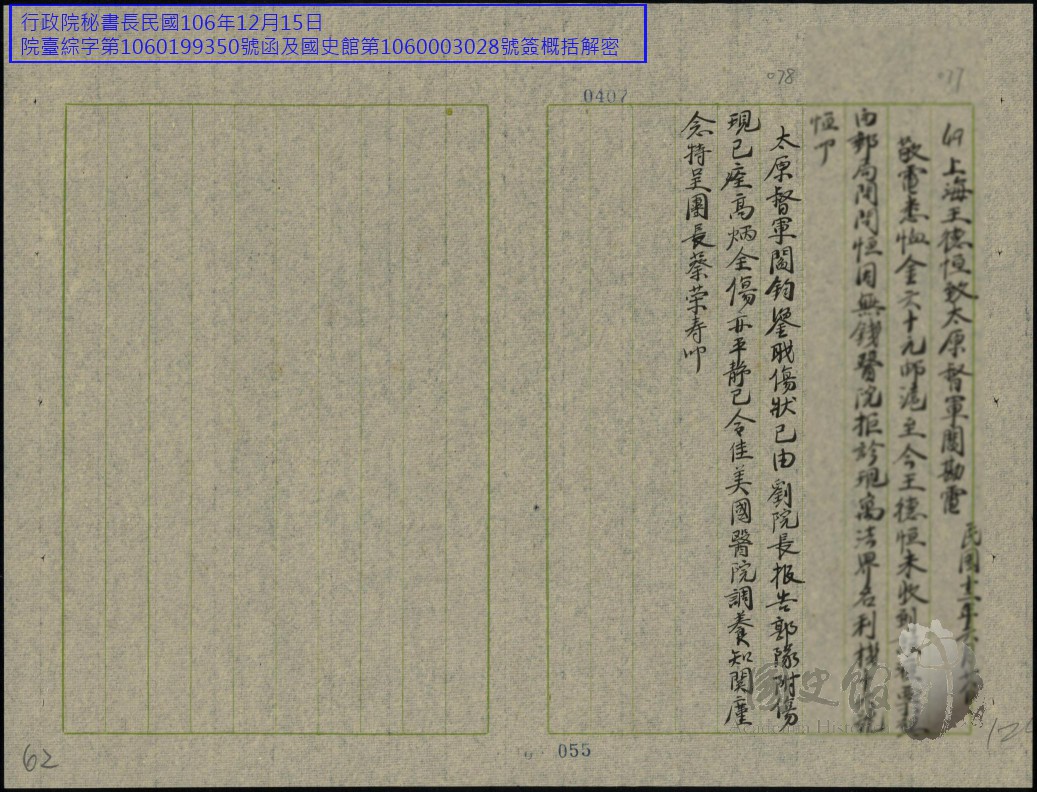 行政院秘書長民國106年12月15日
院臺綜字第1060199350號函及國史館第1060003028號簽概括解密
077
078
0407
上海王德恒致太原督軍閻勘電
民國十三年六月
敬電悉恤金六十元師滬至今王德恒未收到
向郵局問問恒因無錢醫院拒診現寓法界名利棧十號
恒叩
太原督軍閻鈞鑒職傷狀已由劉院長报告郭隊附傷
現已痊高炳全傷亦平静已令住美國醫院調養知関廑
念特呈團長蔡荣寿叩
國史館
055
62